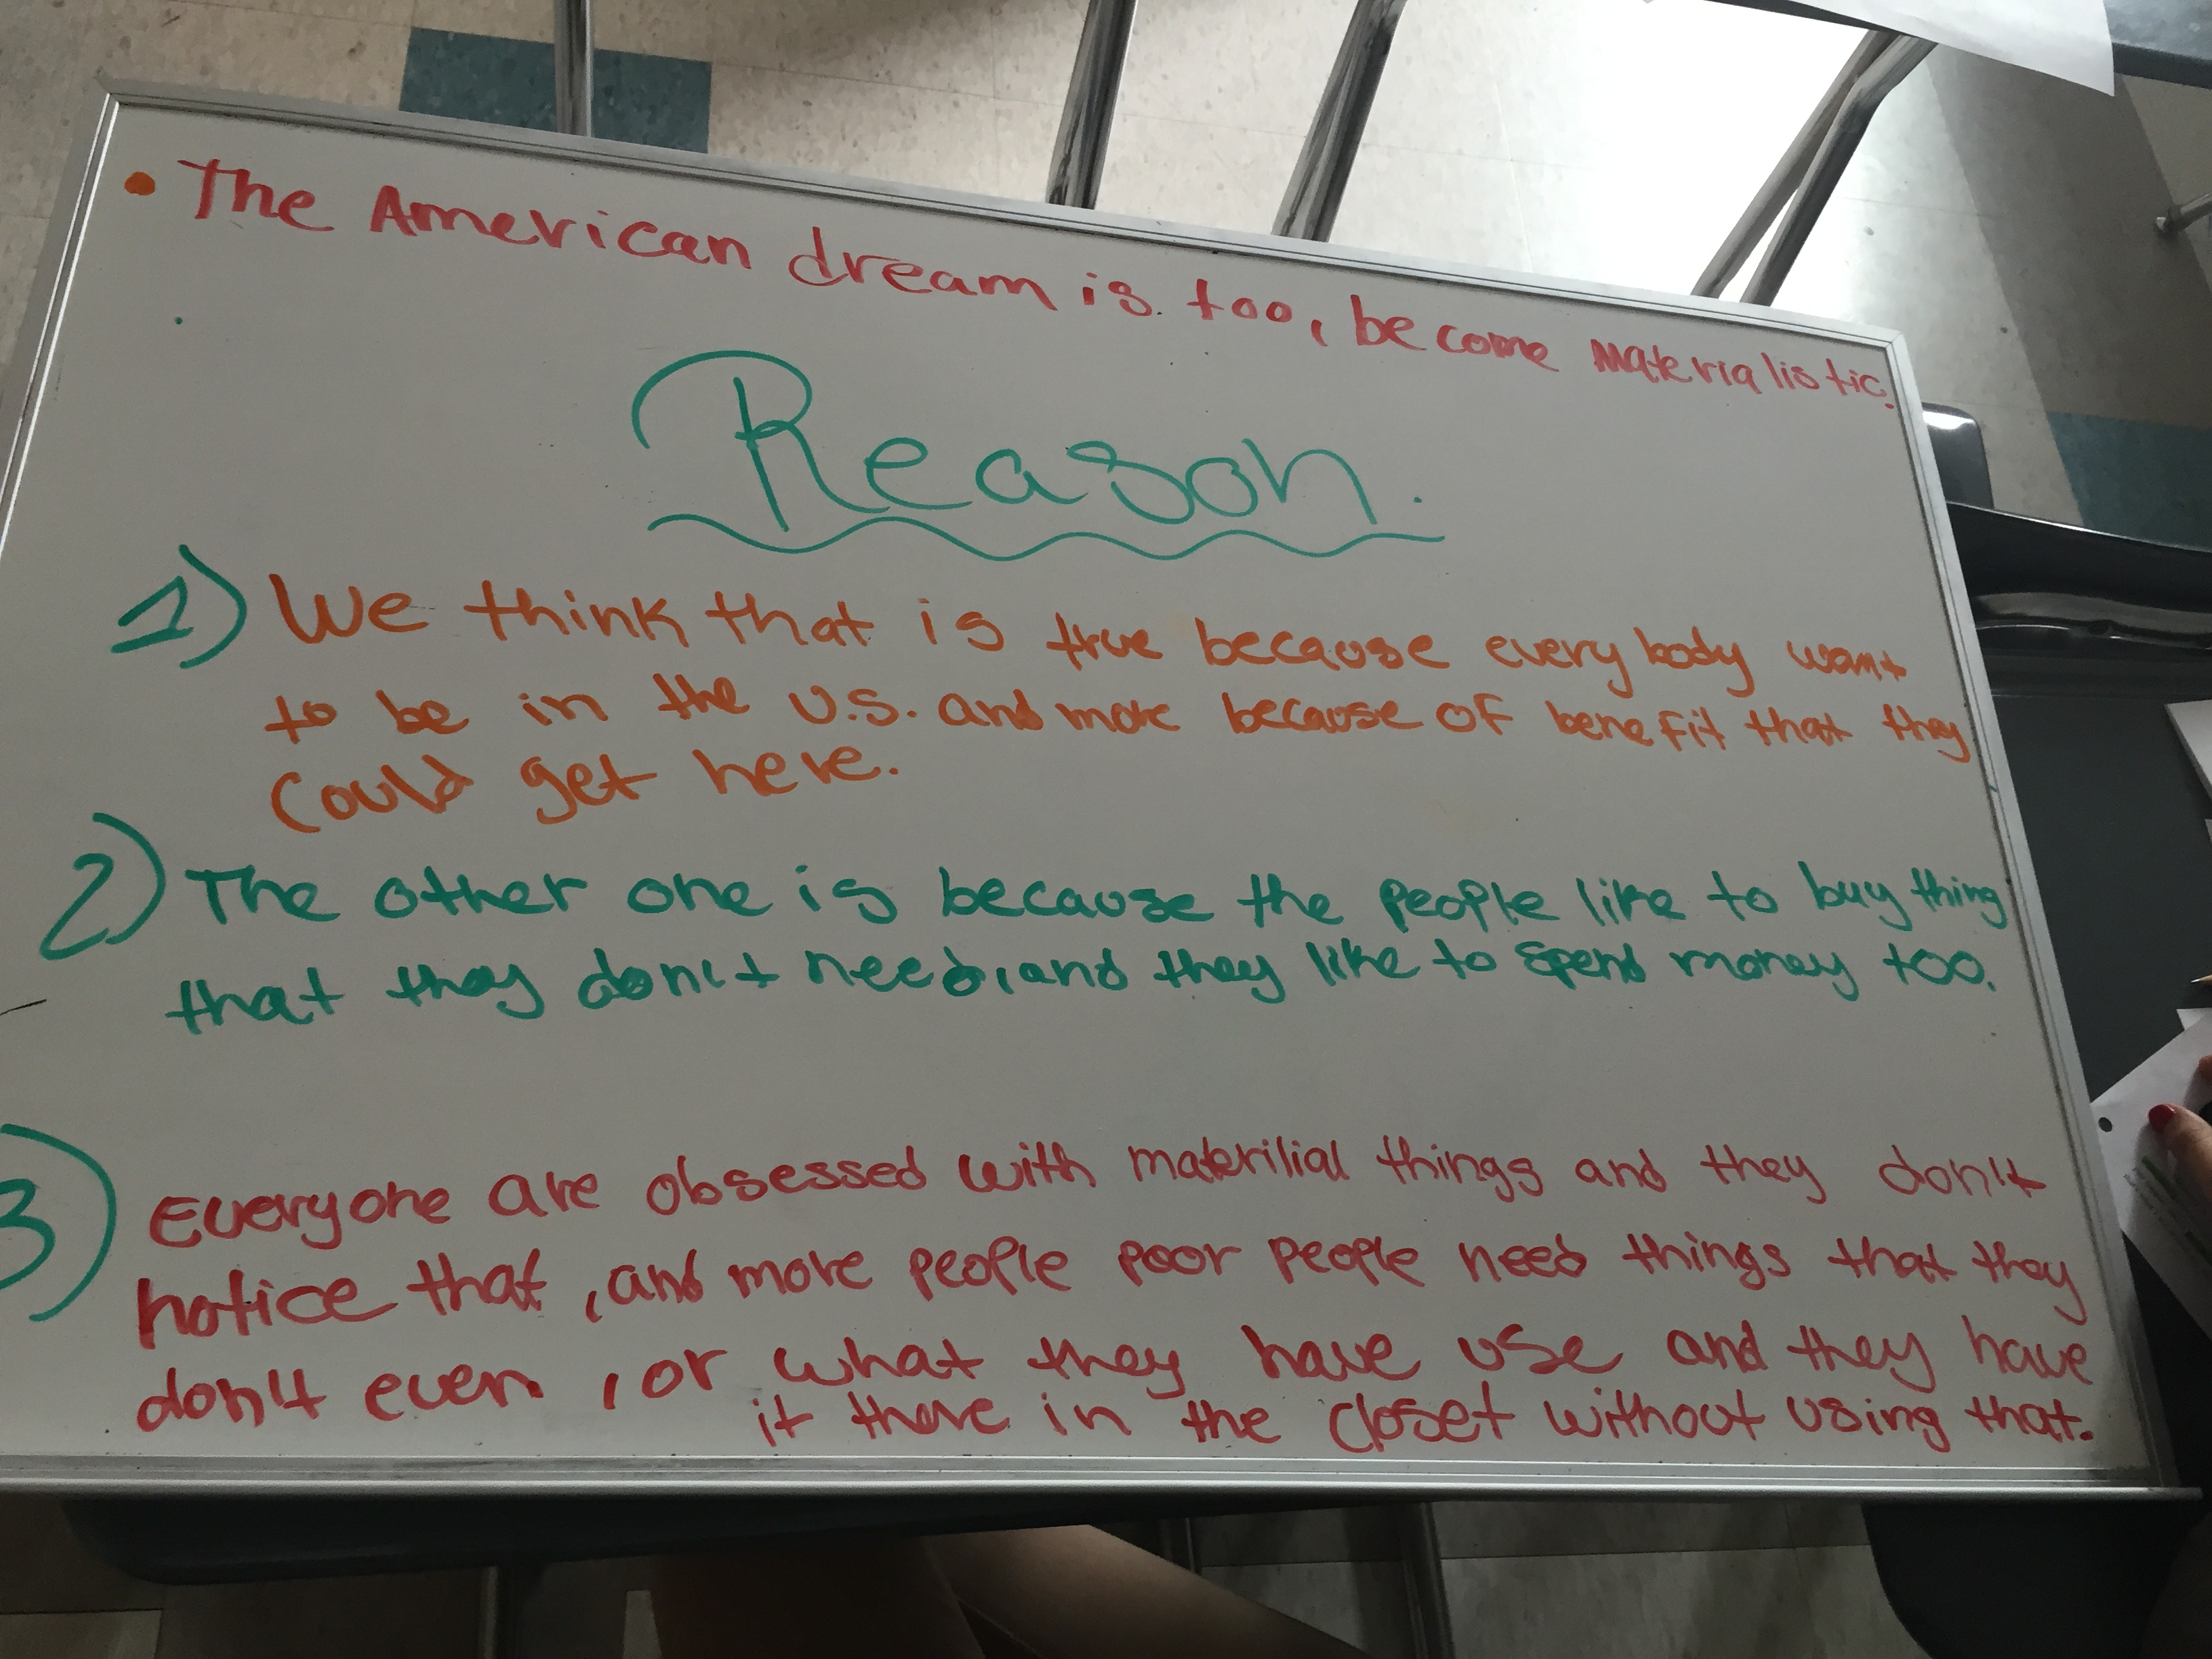 • The American dream is too, become Materialistic.
Reason.
1) We think that is true because everybody want
to be in the U.S. and more because of benefit that they
could get here.
2) The other one is because the people like to buy thing
that they don't need, and they like to spend money too.
3) Everyone are obsessed with matérilial things and they don't
notice that, and more people poor people need things that they
don't even, or what they have use and they have
it there in the closet without using that.